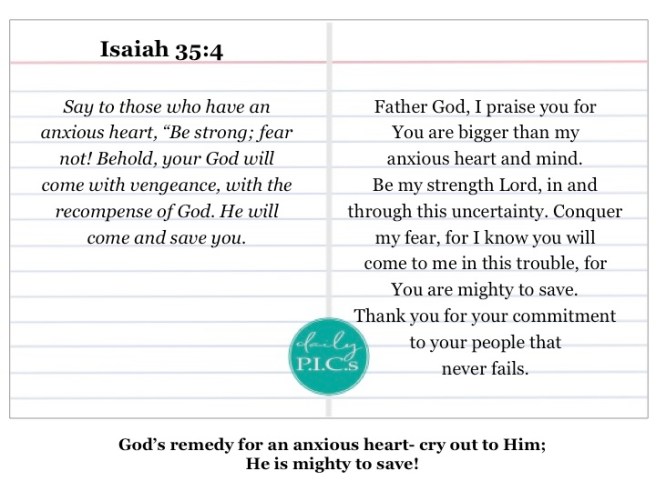 Isaiah 35:4
Say to those who have an
anxious heart, “Be strong; fear
not! Behold, your God will
come with vengeance, with the
recompense of God. He will
come and save you.
Father God, I praise you for
You are bigger than my
anxious heart and mind.
Be my strength Lord, in and
through this uncertainty. Conquer
my fear, for I know you will
come to me in this trouble, for
You are mighty to save.
Thank you for your commitment
to your people that
never fails.
daily
P.I.C.s
God’s remedy for an anxious heart- cry out to Him;
He is mighty to save!